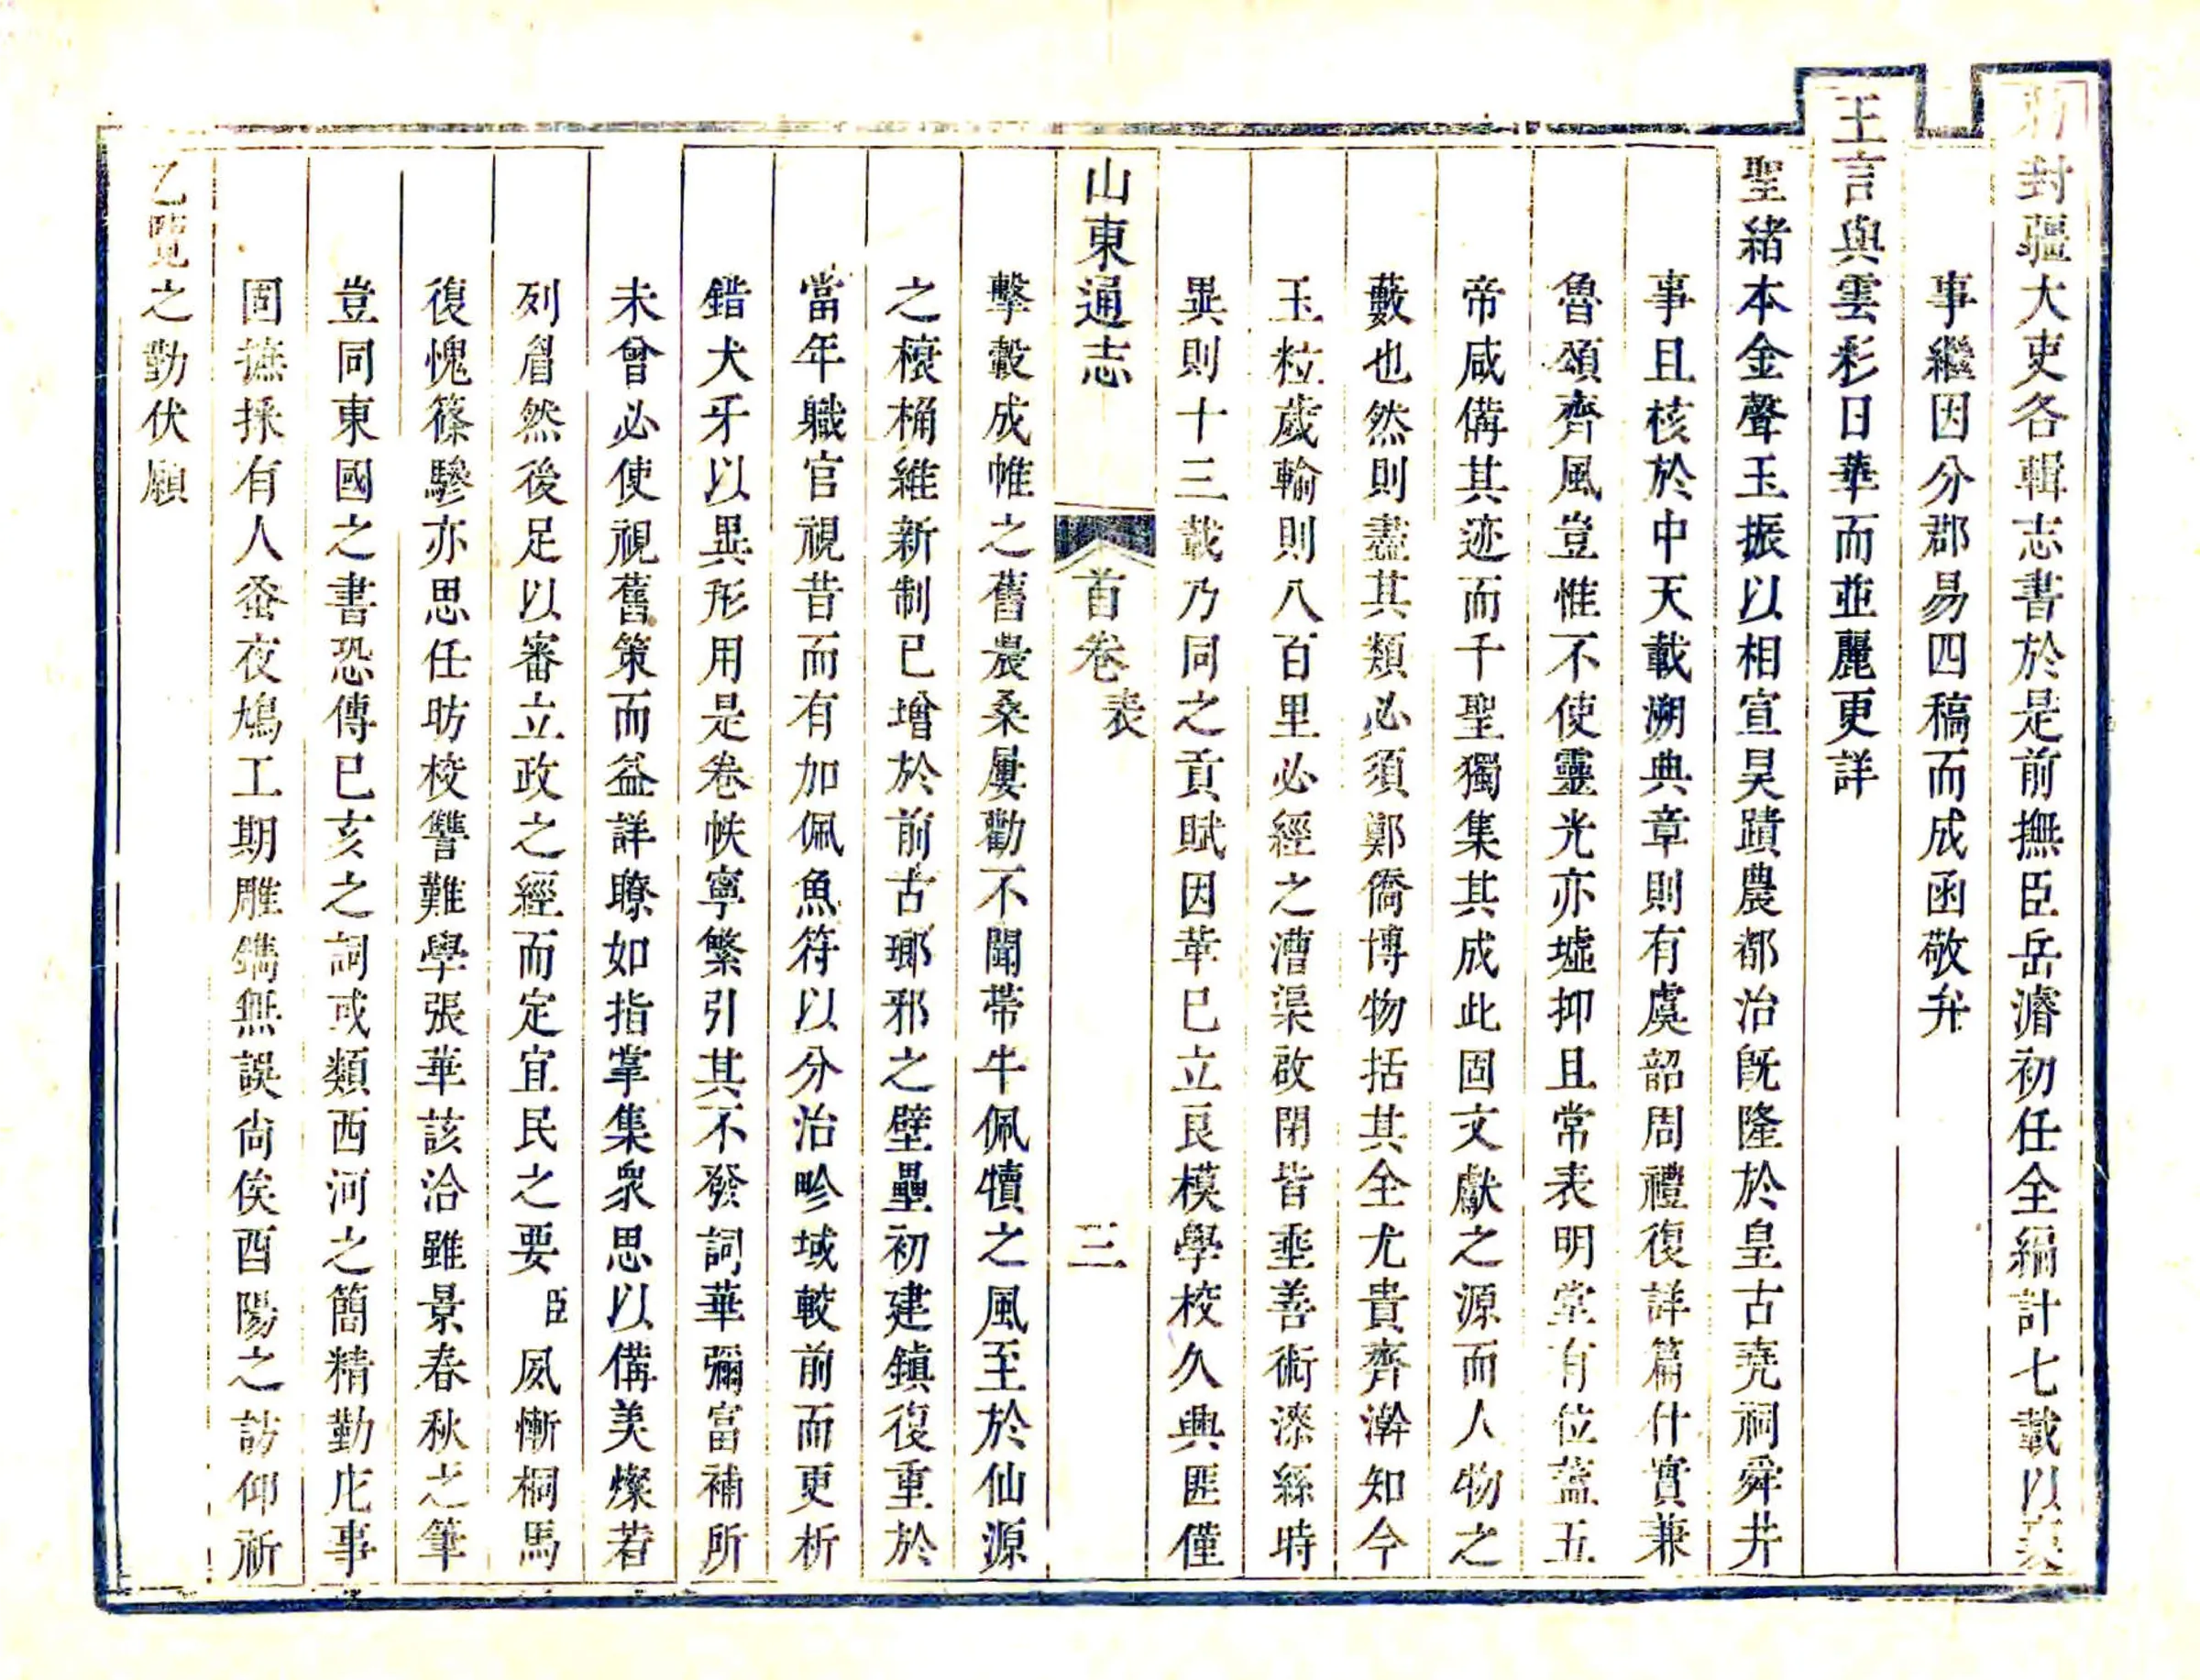 勅封疆大吏各輯志書於是前撫臣岳濬初任全編計七載以蕆
事繼因分郡易四稿而成函敬弁
王言與雲彩日華而並麗更詳
聖緒本金聲玉振以相宣昊蹟農都治旣隆於皇古堯祠舜井
事且核於中天載溯典章則有虞韶周禮復詳篇什實兼
魯頌齊風豈惟不使靈光亦墟抑且常表明堂有位葢五
帝咸備其迹而千聖獨集其成此固文獻之源而人物之
藪也然則盡其類必須鄭僑博物括其全尤貴齊澣知今
玉粒歲輸則八百里必經之漕渠啟閉皆埀善術漆絲時
異則十三載乃同之貢賦因革已立良模學校久興匪僅
山東通志 首卷 表 三
擊轂成帷之舊農桑屢勸不聞帶牛佩犢之風至於仙源
之榱桷維新制已增於前古瑯邪之壁壘初建鎮復重於
當年職官視昔而有加佩魚符以分治畛域較前而更析
錯犬牙以異形用是卷帙寧繁引其不發詞華彌富補所
未曾必使視舊策而益詳瞭如指掌集衆思以備美燦若
列眉然後足以審立政之經而定宜民之要臣夙慚桐馬
復愧篠驂亦思任昉校讐難學張華該洽雖景春秋之筆
豈同東國之書恐傳已亥之詞或類西河之簡精勤庀事
固撫採有人蚤夜鳩工期雕鐫無誤尙俟酉陽之訪仰祈
乙覽之勤伏願